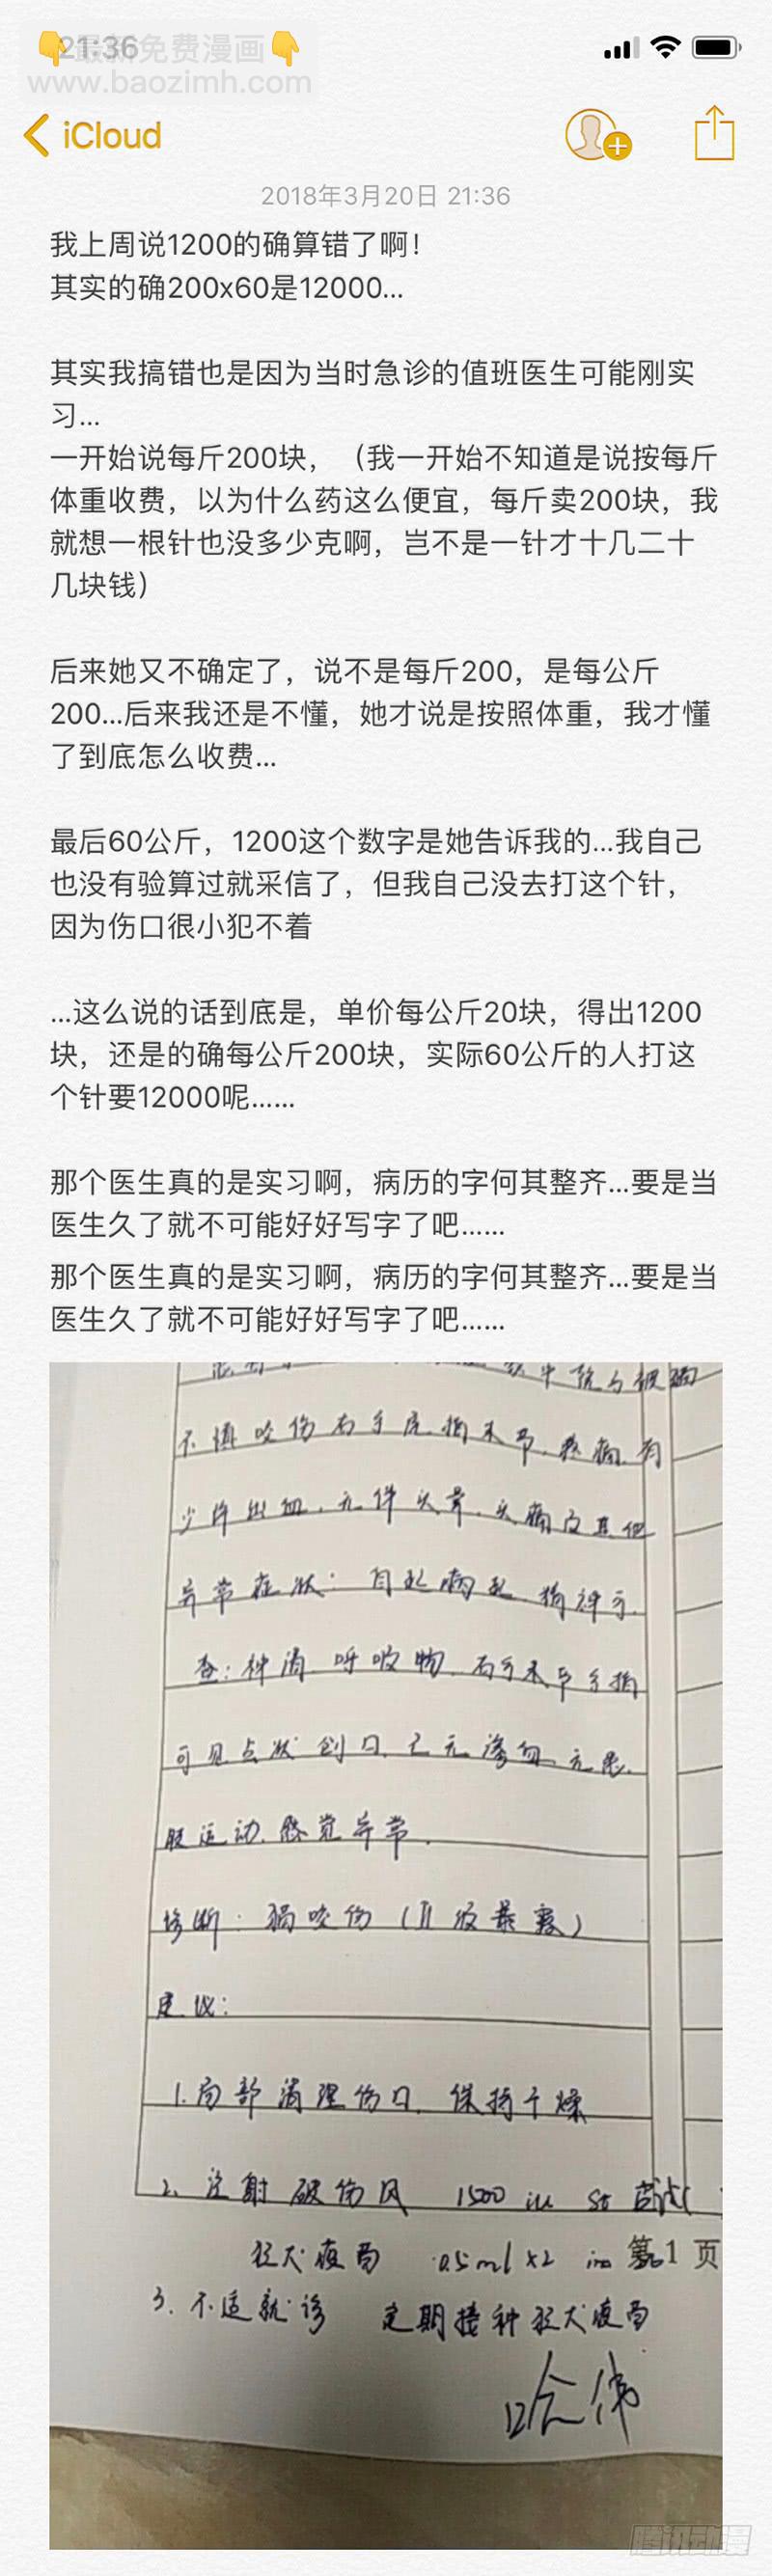 👇最新免费漫画👇
21:36
www.baozimh.com
iCloud
2018年3月20日 21:36
我上周说1200的确算错了啊！
其实的确200x60是12000...
其实我搞错也是因为当时急诊的值班医生可能刚实
习...
一开始说每斤200块，（我一开始不知道是说按每斤
体重收费，以为什么药这么便宜，每斤卖200块，我
就想一根针也没多少克啊，岂不是一针才十几二十
几块钱）
后来她又不确定了，说不是每斤200，是每公斤
200...后来我还是不懂，她才说是按照体重，我才懂
了到底怎么收费...
最后60公斤，1200这个数字是她告诉我的...我自己
也没有验算过就采信了，但我自己没去打这个针，
因为伤口很小犯不着
...这么说的话到底是，单价每公斤20块，得出1200
块，还是的确每公斤200块，实际60公斤的人打这
个针要12000呢......
那个医生真的是实习啊，病历的字何其整齐...要是当
医生久了就不可能好好写字了吧......
那个医生真的是实习啊，病历的字何其整齐...要是当
医生久了就不可能好好写字了吧......
不慎咬伤右手 指末节.疼痛.有
少许出血.无伴头晕.头痛及其他
异常症状.
查:神清.呼吸 .右手末节手指
可见点状创口.已无渗血.无
肢运动.感觉异常.
诊断: 猫咬伤（II级暴露）
建议:
1.局部清理伤口.保持干燥
2.注射破伤风 1500 iu st
狂犬疫苗 0.5ml x2 im 第1页
3.不适就诊 定期接种狂犬疫苗
腾讯动漫